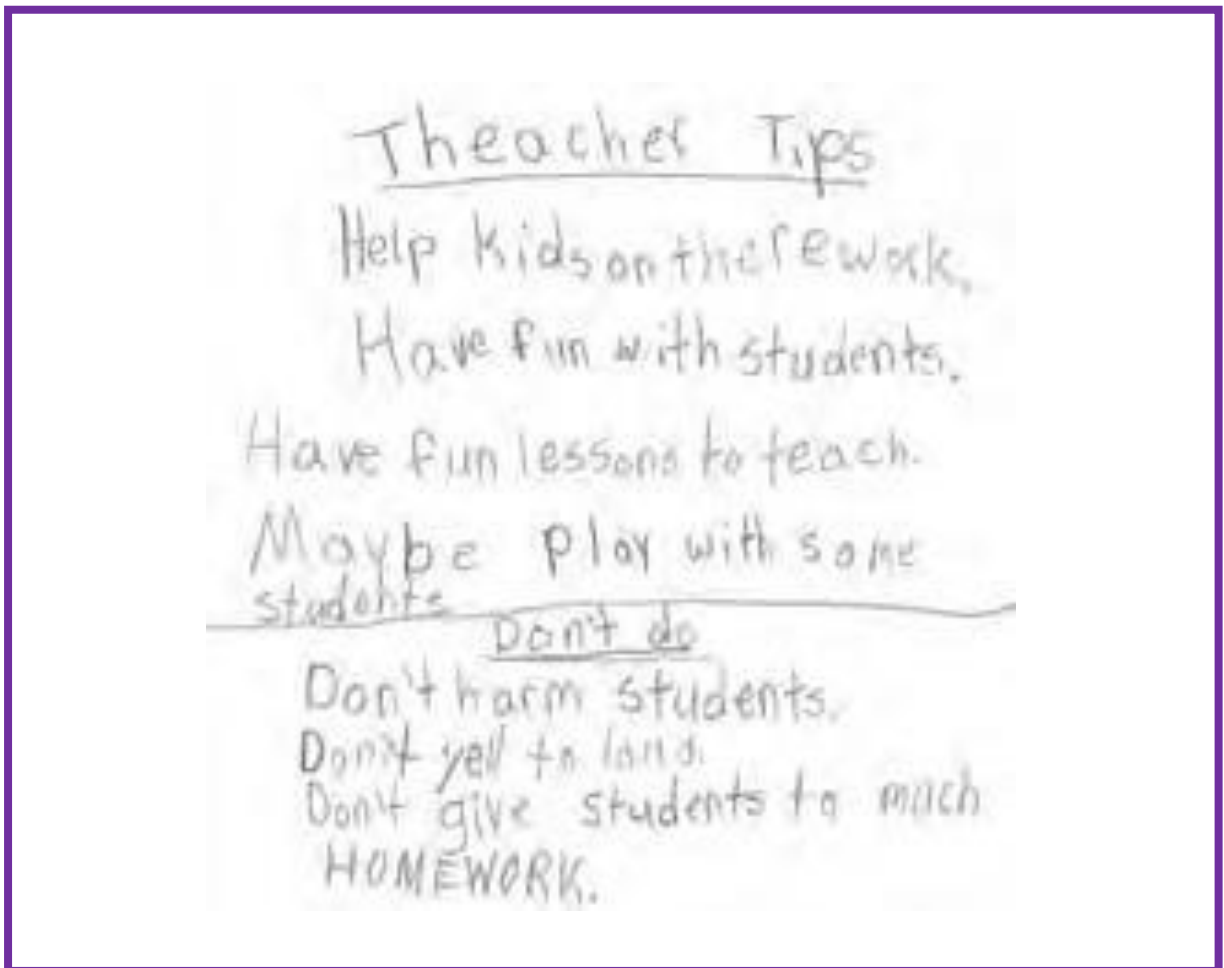 Theacher Tips
Help kids on there work.
Have fun with students.
Have fun lessons to teach.
Maybe play with some
students
Don't do
Don't harm students.
Don't yell to loud.
Don't give students to much
HOMEWORK.